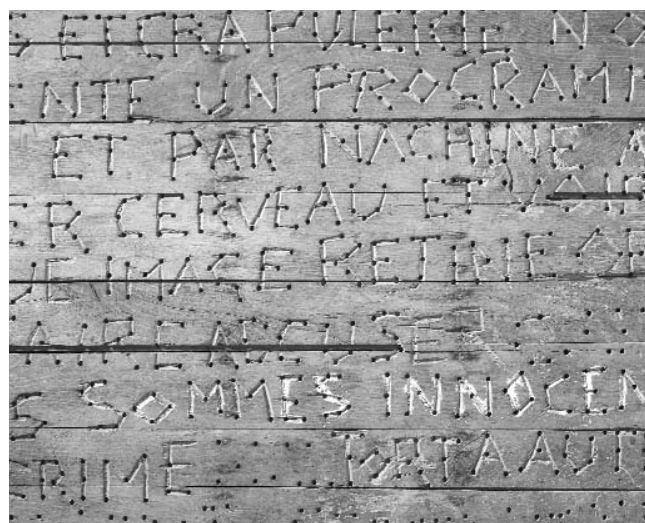 S ET CRAPULERIE NO
NTE UN PROGRAMM
ET PAR MACHINE A
ER CERVEAU ET VOIR
UE IMAGE RETINE OE
AIRE ACCUSER
S SOMMES INNOCEN
CRIME TORT A AUTR